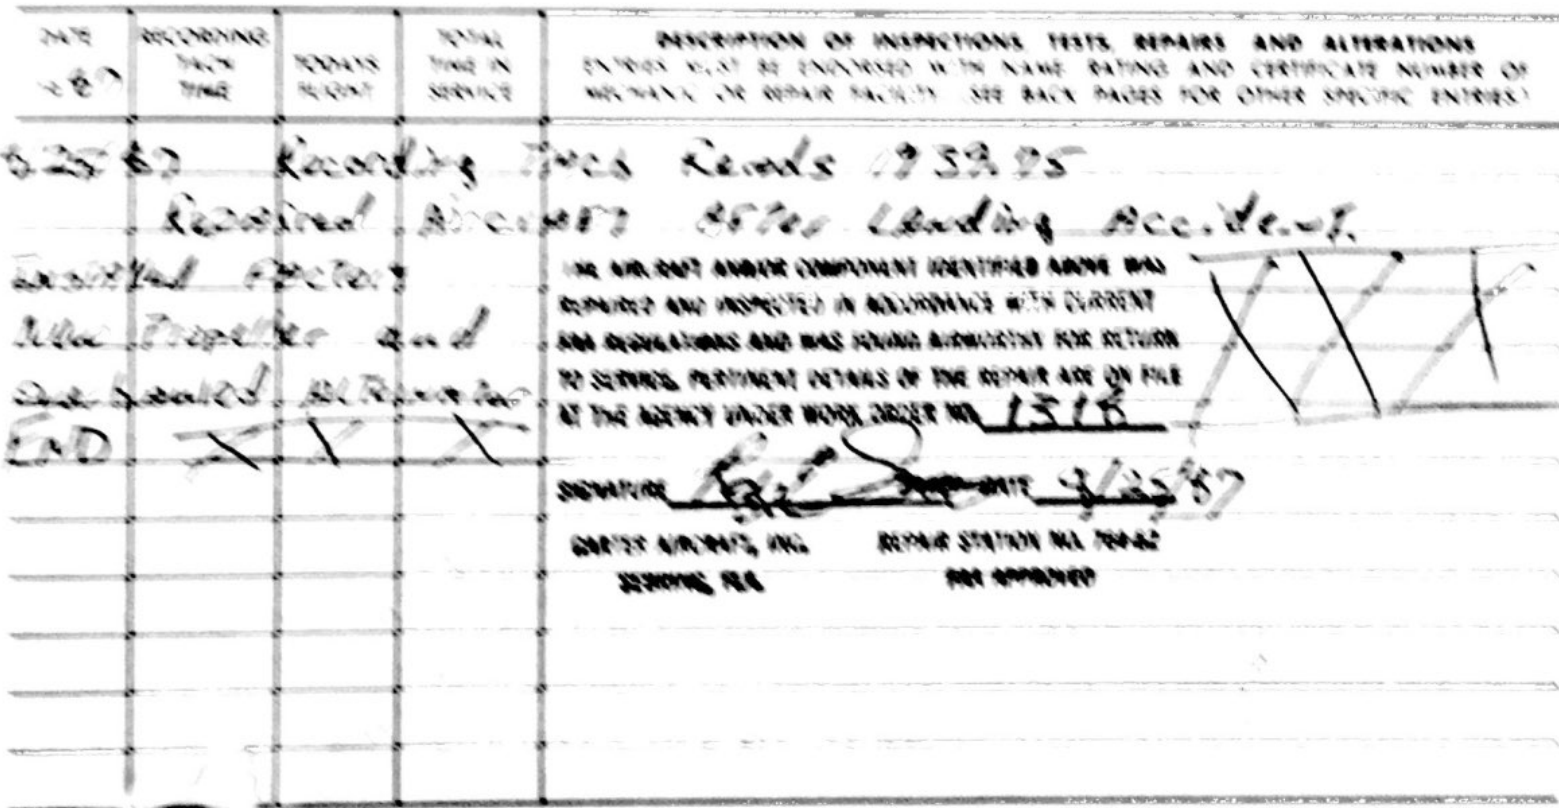 DATE
19 87
RECORDING
TACH
TIME
TODAYS
FLIGHT
TOTAL
TIME IN
SERVICE
DESCRIPTION OF INSPECTIONS, TESTS, REPAIRS AND ALTERATIONS
ENTRIES MUST BE ENDORSED WITH NAME RATING AND CERTIFICATE NUMBER OF
MECHANIC OR REPAIR FACILITY. (SEE BACK PAGES FOR OTHER SPECIFIC ENTRIES.)
25 87 Recording Tach Reads 1939.95
Repaired Aircraft After Landing Accident.
Installed Factory
New Propeller and
overhauled Alternator
END
THE AIRCRAFT AND/OR COMPONENT IDENTIFIED ABOVE WAS
REPAIRED AND INSPECTED IN ACCORDANCE WITH CURRENT
FAA REGULATIONS AND WAS FOUND AIRWORTHY FOR RETURN
TO SERVICE. PERTINENT DETAILS OF THE REPAIR ARE ON FILE
AT THE AGENCY UNDER WORK ORDER NO. 1318
SIGNATURE DATE /25/87
AIRCRAFT, INC. REPAIR STATION NO.
SEBRING, FLA. FAA APPROVED